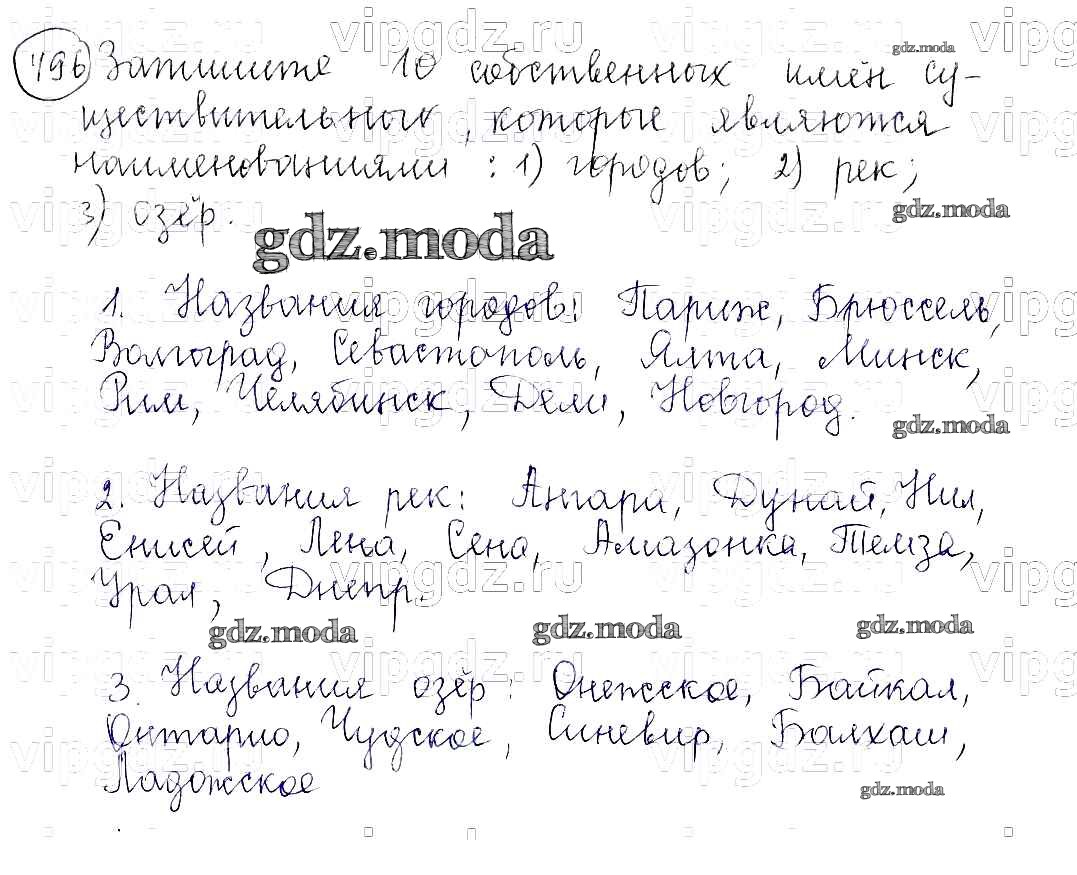 496 Запишите 10 собственных имён су-
ществительных, которые являются
наименованиями: 1) городов; 2) рек;
3) озёр.
gdz.moda
1. Названия городов: Париж, Брюссель,
Волгоград, Севастополь, Ялта, Минск,
Рим, Челябинск, Дели, Новгород.
2. Названия рек: Ангара, Дунай, Нил,
Енисей, Лена, Сена, Амазонка, Темза,
Урал, Днепр.
gdz.moda gdz.moda gdz.moda
3. Названия озёр: Онежское, Байкал,
Онтарио, Чудское, Синевир, Балхаш,
Ладожское
gdz.moda